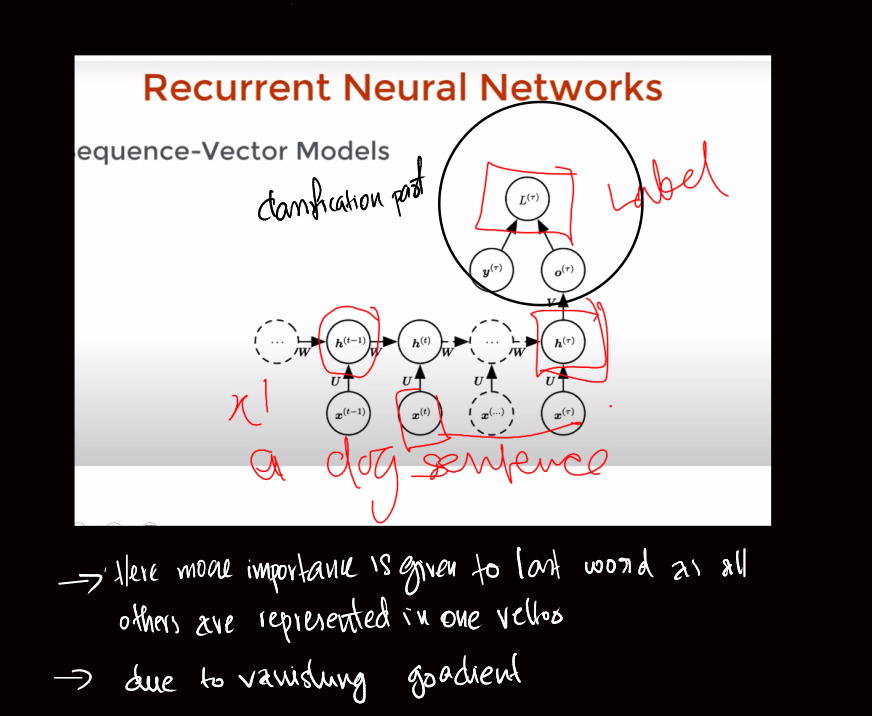 Recurrent Neural Networks
equence-Vector Models
classification part
Label
L(τ)
y(τ) o(τ)
V
... h(t−1) h(t) ... h(τ)
W W W W
U U U U
x(t−1) x(t) x(...) x(τ)
x1
a dog sentence
→ Here more importance is given to last word as all
others are represented in one vector
→ due to vanishing gradient